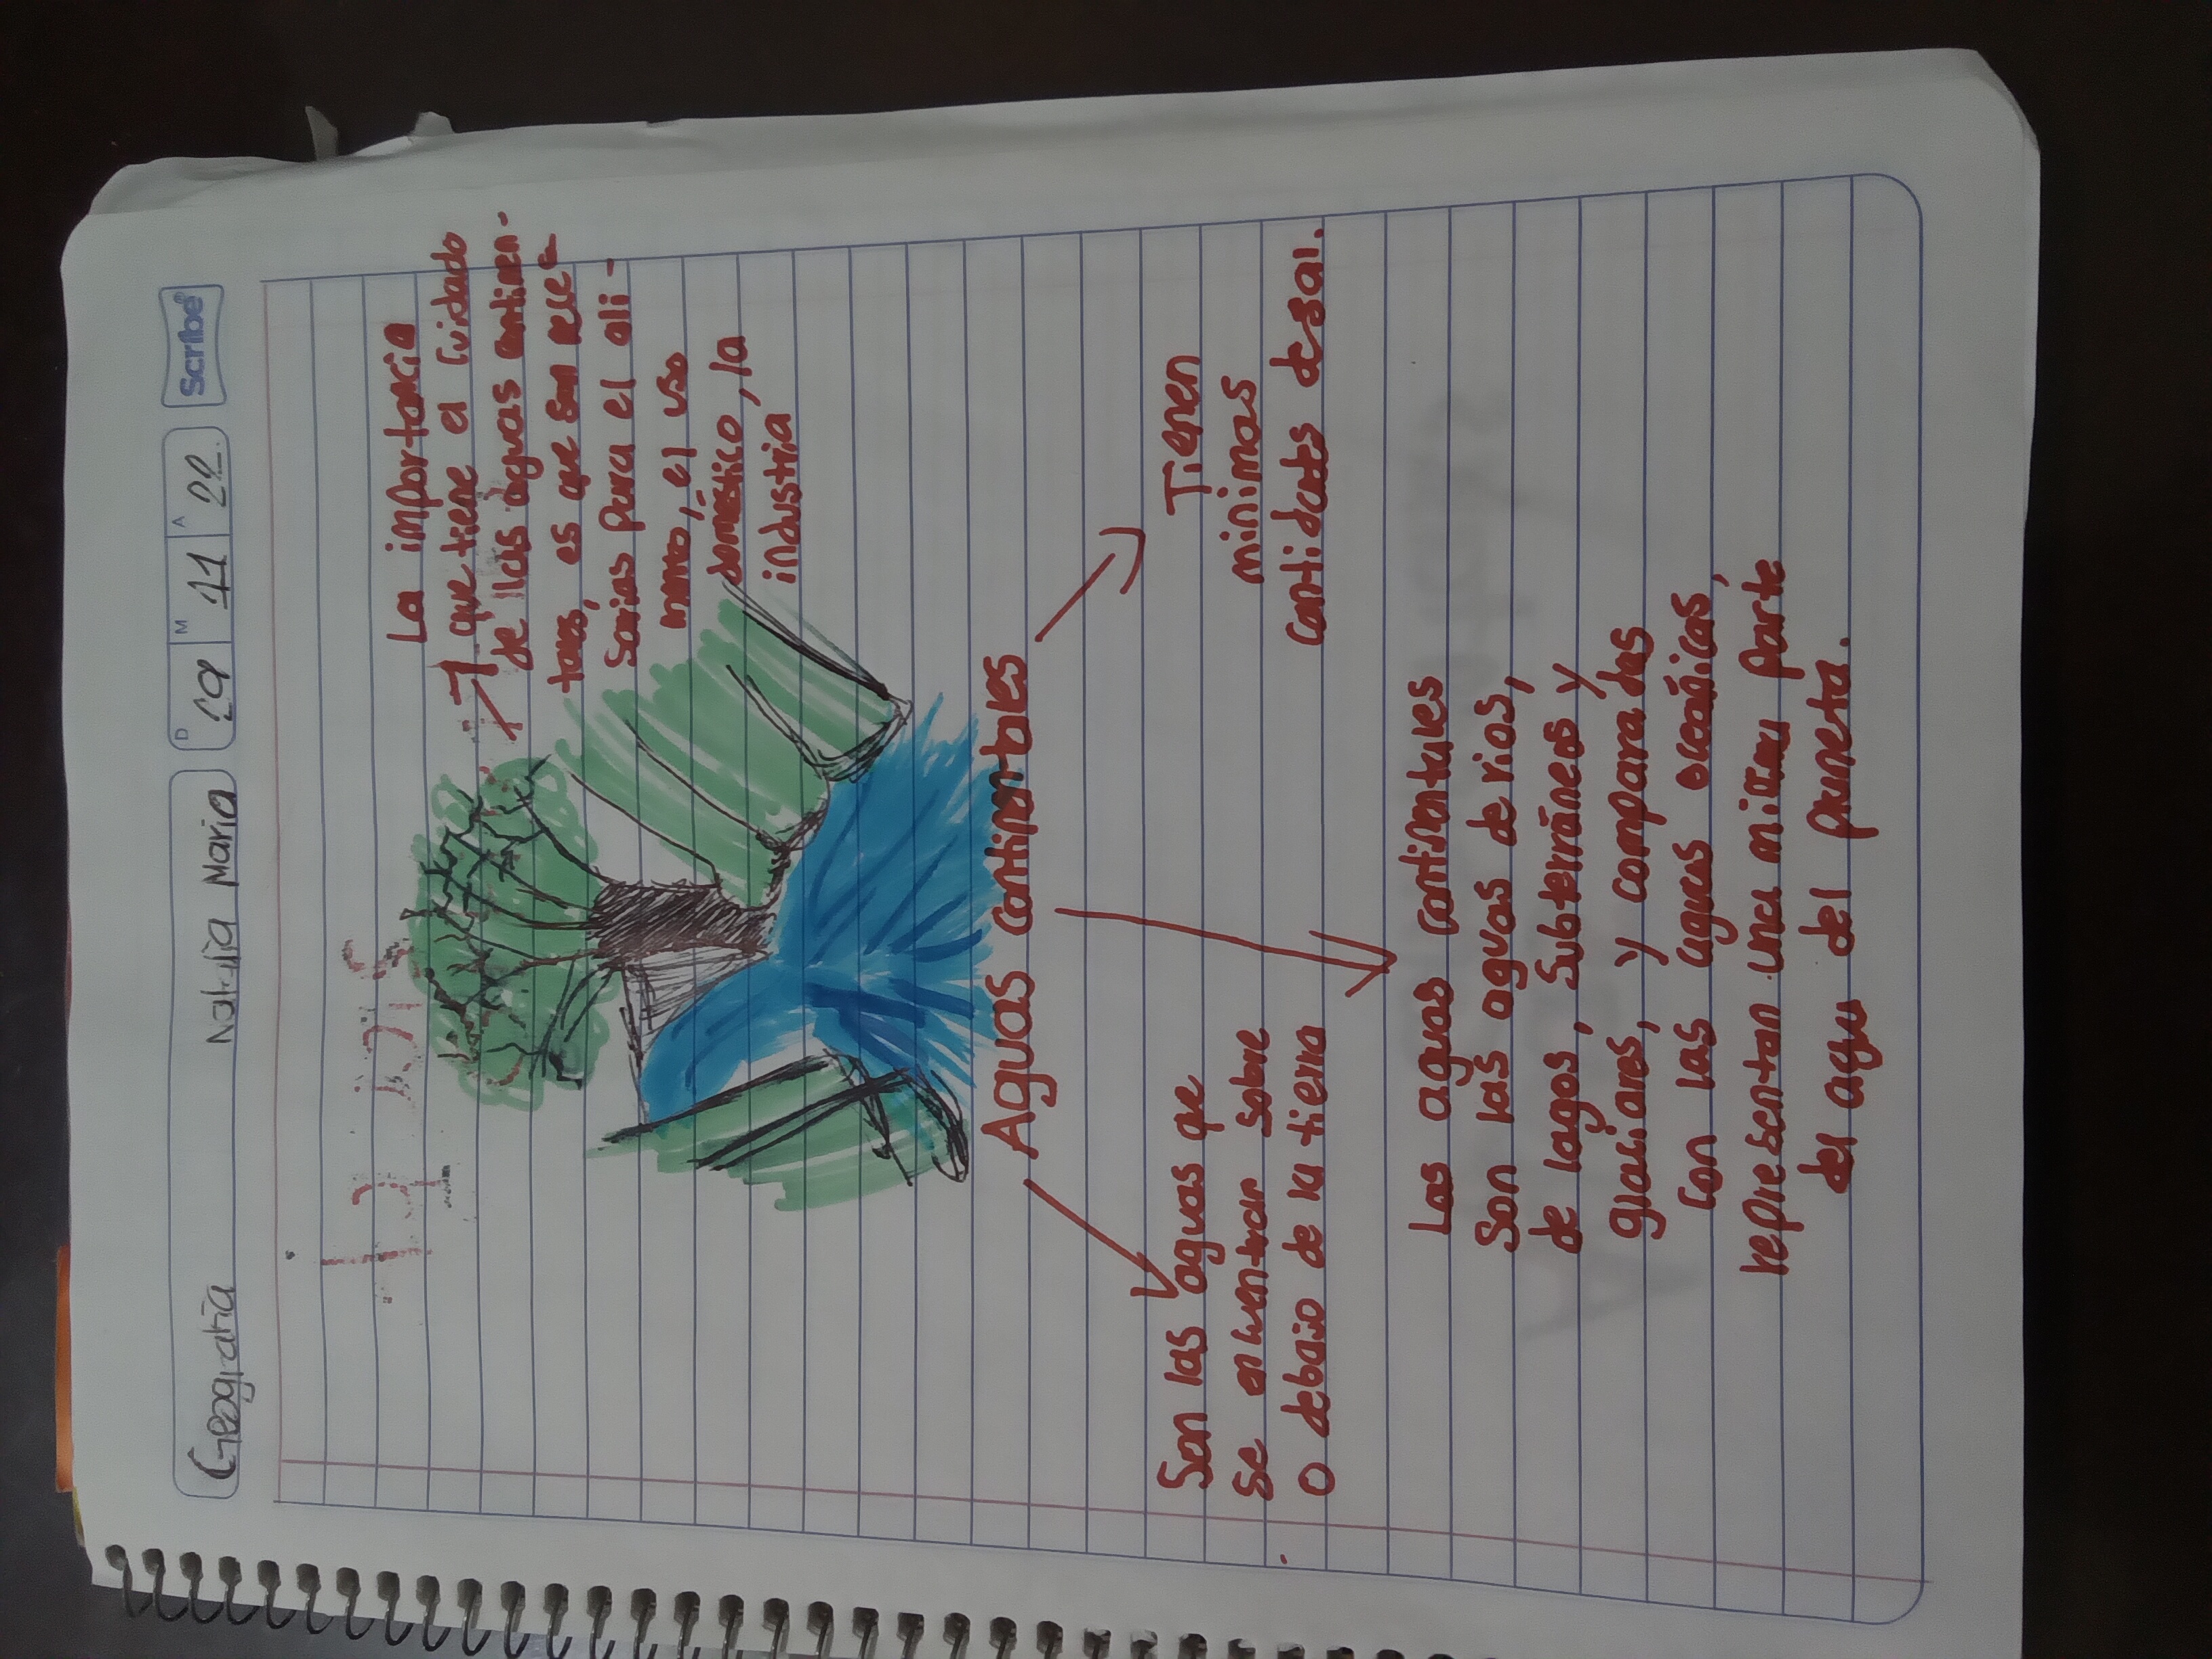 Geografía Natalia Maria D 29 M 11 A 22 Scribe®
La importancia
que tiene el cuidado
de las aguas continen-
tales, es que son nece-
sarias para el ali-
mento, el uso
doméstico, la
industria
Aguas continentales
Son las aguas que
se encuentran sobre
o debajo de la tierra
Tienen
minimas
cantidades de sal.
Las aguas continentales
son las aguas de rios,
de lagos, subterráneas y
glaciares, y comparadas
con las aguas oceánicas,
representan una minima parte
del agua del planeta.